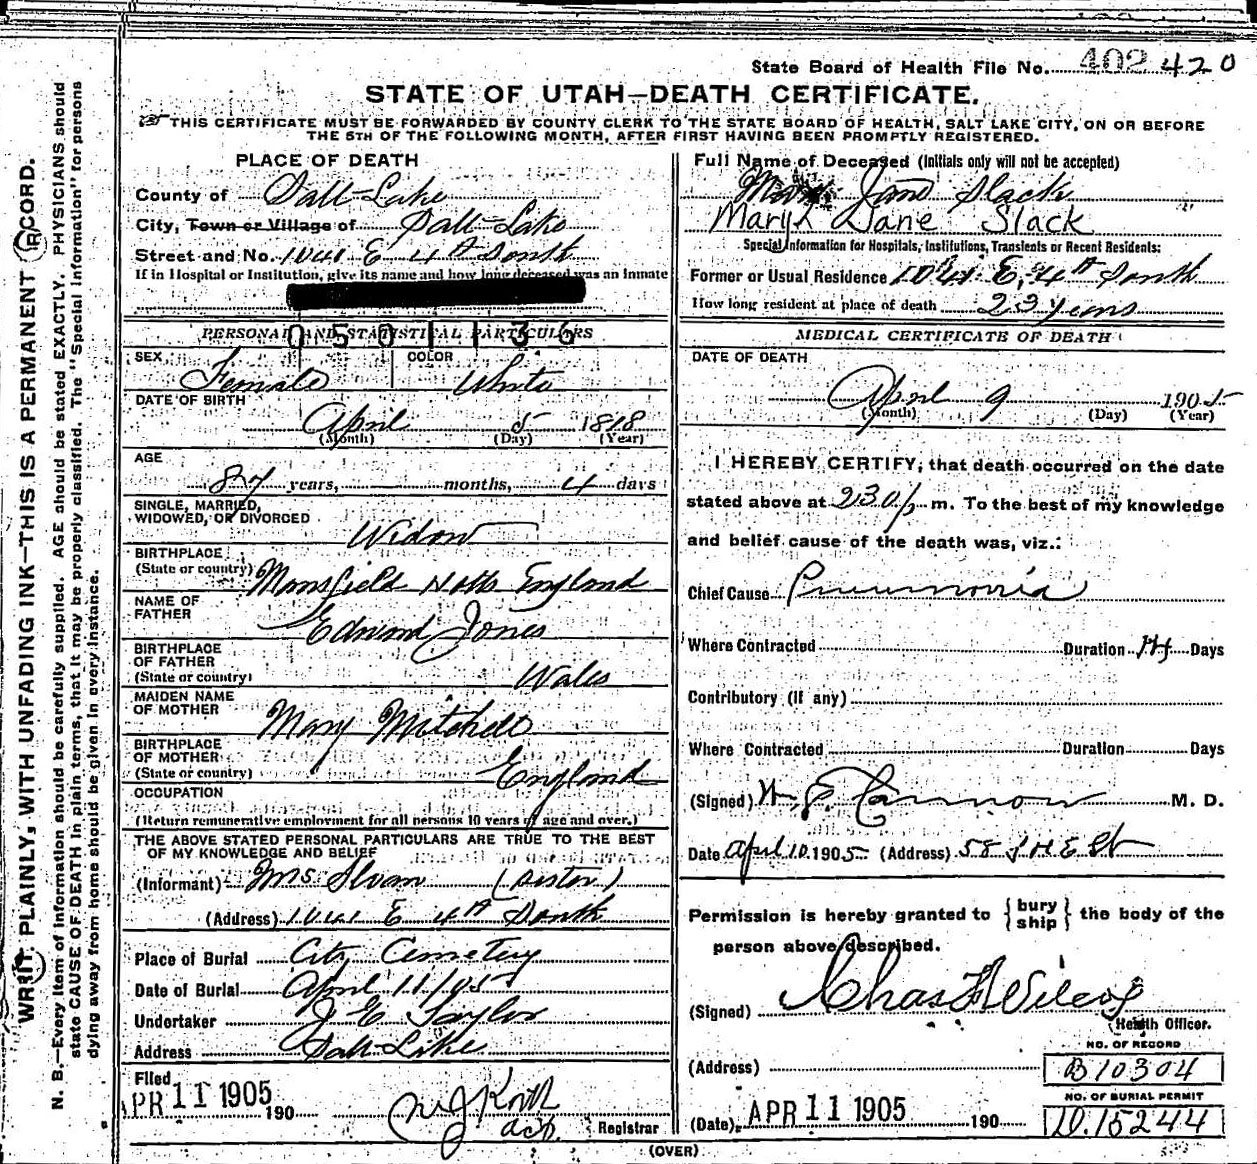 State Board of Health File No. 402 420
STATE OF UTAH—DEATH CERTIFICATE.
THIS CERTIFICATE MUST BE FORWARDED BY COUNTY CLERK TO THE STATE BOARD OF HEALTH, SALT LAKE CITY, ON OR BEFORE
THE 5TH OF THE FOLLOWING MONTH, AFTER FIRST HAVING BEEN PROMPTLY REGISTERED.
WRITE PLAINLY, WITH UNFADING INK—THIS IS A PERMANENT RECORD.
N. B.—Every item of information should be carefully supplied. AGE should be stated EXACTLY. PHYSICIANS should
state CAUSE OF DEATH in plain terms, that it may be properly classified. The "Special Information" for persons
dying away from home should be given in every instance.
PLACE OF DEATH
County of Salt Lake
City, Town or Village of Salt Lake
Street and No. 1041 E 4th South
If in Hospital or Institution, give its name and how long deceased was an inmate
PERSONAL AND STATISTICAL PARTICULARS
0501136
SEX Female
COLOR White
DATE OF BIRTH
April 5 1818
(Month) (Day) (Year)
AGE
87 years, months, 4 days
SINGLE, MARRIED,
WIDOWED, OR DIVORCED Widow
BIRTHPLACE
(State or country) Mansfield Notts England
NAME OF
FATHER Edward Jones
BIRTHPLACE
OF FATHER
(State or country) Wales
MAIDEN NAME
OF MOTHER Mary Mitchell
BIRTHPLACE
OF MOTHER
(State or country) England
OCCUPATION
(Return remunerative employment for all persons 10 years of age and over.)
THE ABOVE STATED PERSONAL PARTICULARS ARE TRUE TO THE BEST
OF MY KNOWLEDGE AND BELIEF
(Informant) Mrs Sloan (Sister)
(Address) 1041 E 4th South
Place of Burial City Cemetery
Date of Burial April 11/05
Undertaker J E Taylor
Address Salt Lake
Filed
APR 11 1905 190
Registrar
Full Name of Deceased (Initials only will not be accepted)
Mary Jane Slack
Mary Jane Slack
Special Information for Hospitals, Institutions, Transients or Recent Residents:
Former or Usual Residence 1041 E, 4th South
How long resident at place of death 23 years
MEDICAL CERTIFICATE OF DEATH
DATE OF DEATH
April 9 1905
(Month) (Day) (Year)
I HEREBY CERTIFY, that death occurred on the date
stated above at 230 p m. To the best of my knowledge
and belief cause of the death was, viz.:
Chief Cause Pneumonia
Where Contracted Duration Days
Contributory (if any)
Where Contracted Duration Days
(Signed) Cannon M. D.
Date April 10 1905 (Address)
Permission is hereby granted to { bury
ship } the body of the
person above described.
(Signed) Chas F Wilcox
Health Officer.
(Address)
NO. OF RECORD
B10304
NO. OF BURIAL PERMIT
D.15244
(Date) APR 11 1905 190
(OVER)